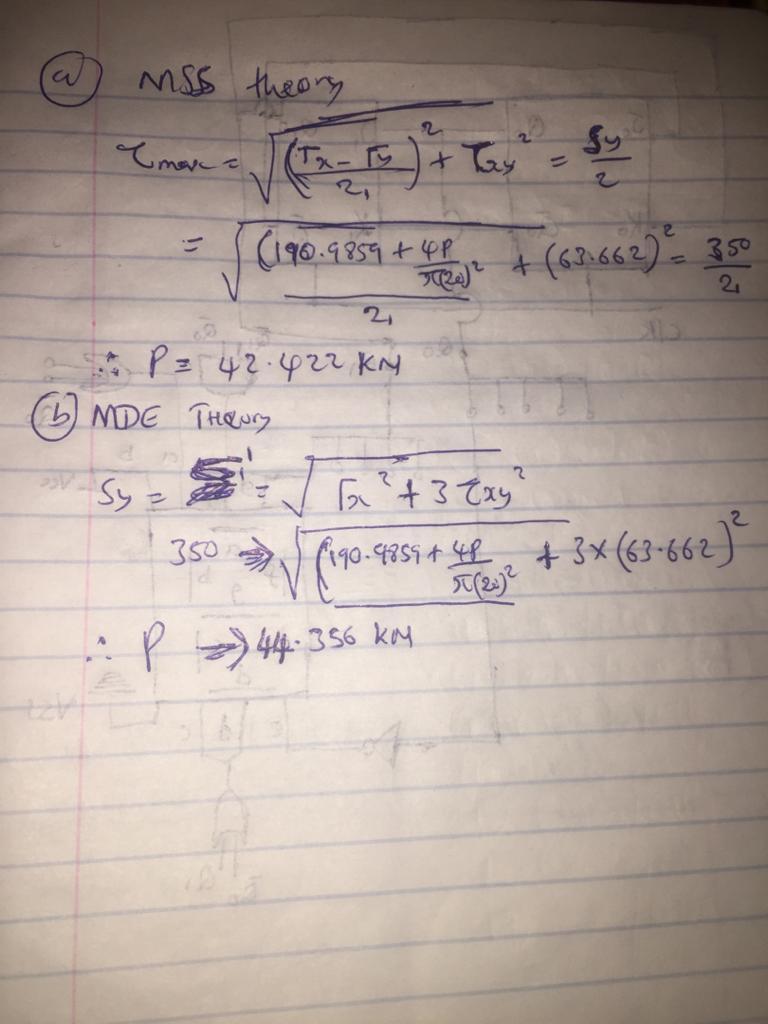 (a) MSS theory
τmax = √((σx − σy)/2)² + τxy² = Sy/2
= √(190.9859 + 4P/π(20)²)/2 + (63.662)² = 350/2
∴ P = 42.422 KN
(b) MDE Theory
Sy = σ' = √σx² + 3τxy²
350 ⇒ √(190.9859 + 4P/π(20)² + 3×(63.662)²
∴ P ⇒ 44.356 KN